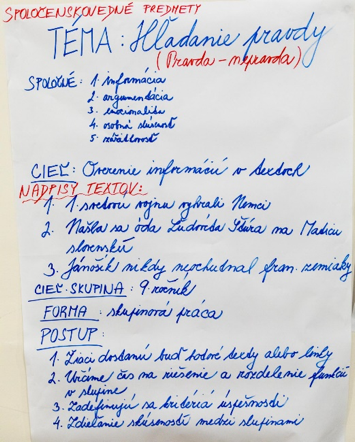 SPOLOČENSKOVEDNÉ PREDMETY
TÉMA: Hľadanie pravdy
(Pravda - nepravda)
SPOLOČNÉ: 1. informácia
2. argumentácia
3. emocionalita
4. osobná skúsenosť
5.
CIEĽ: Overenie informácií v textoch
NADPISY TEXTOV:
1. 1. svetovú vojnu vyhrali Nemci
2. Našla sa óda Ľudovíta Štúra na Maticu
slovenskú
3. Jánošík nikdy neochutnal fran. zemiaky
CIEĽ. SKUPINA: 9. ročník
FORMA: skupinová práca
POSTUP:
1. Žiaci dostanú buď hotové texty alebo linky
2. Určíme čas na riešenie a rozdelenie funkcií
v skupine
3. Zadefinujú sa kritériá úspešnosti
4. Zdieľanie skúseností medzi skupinami